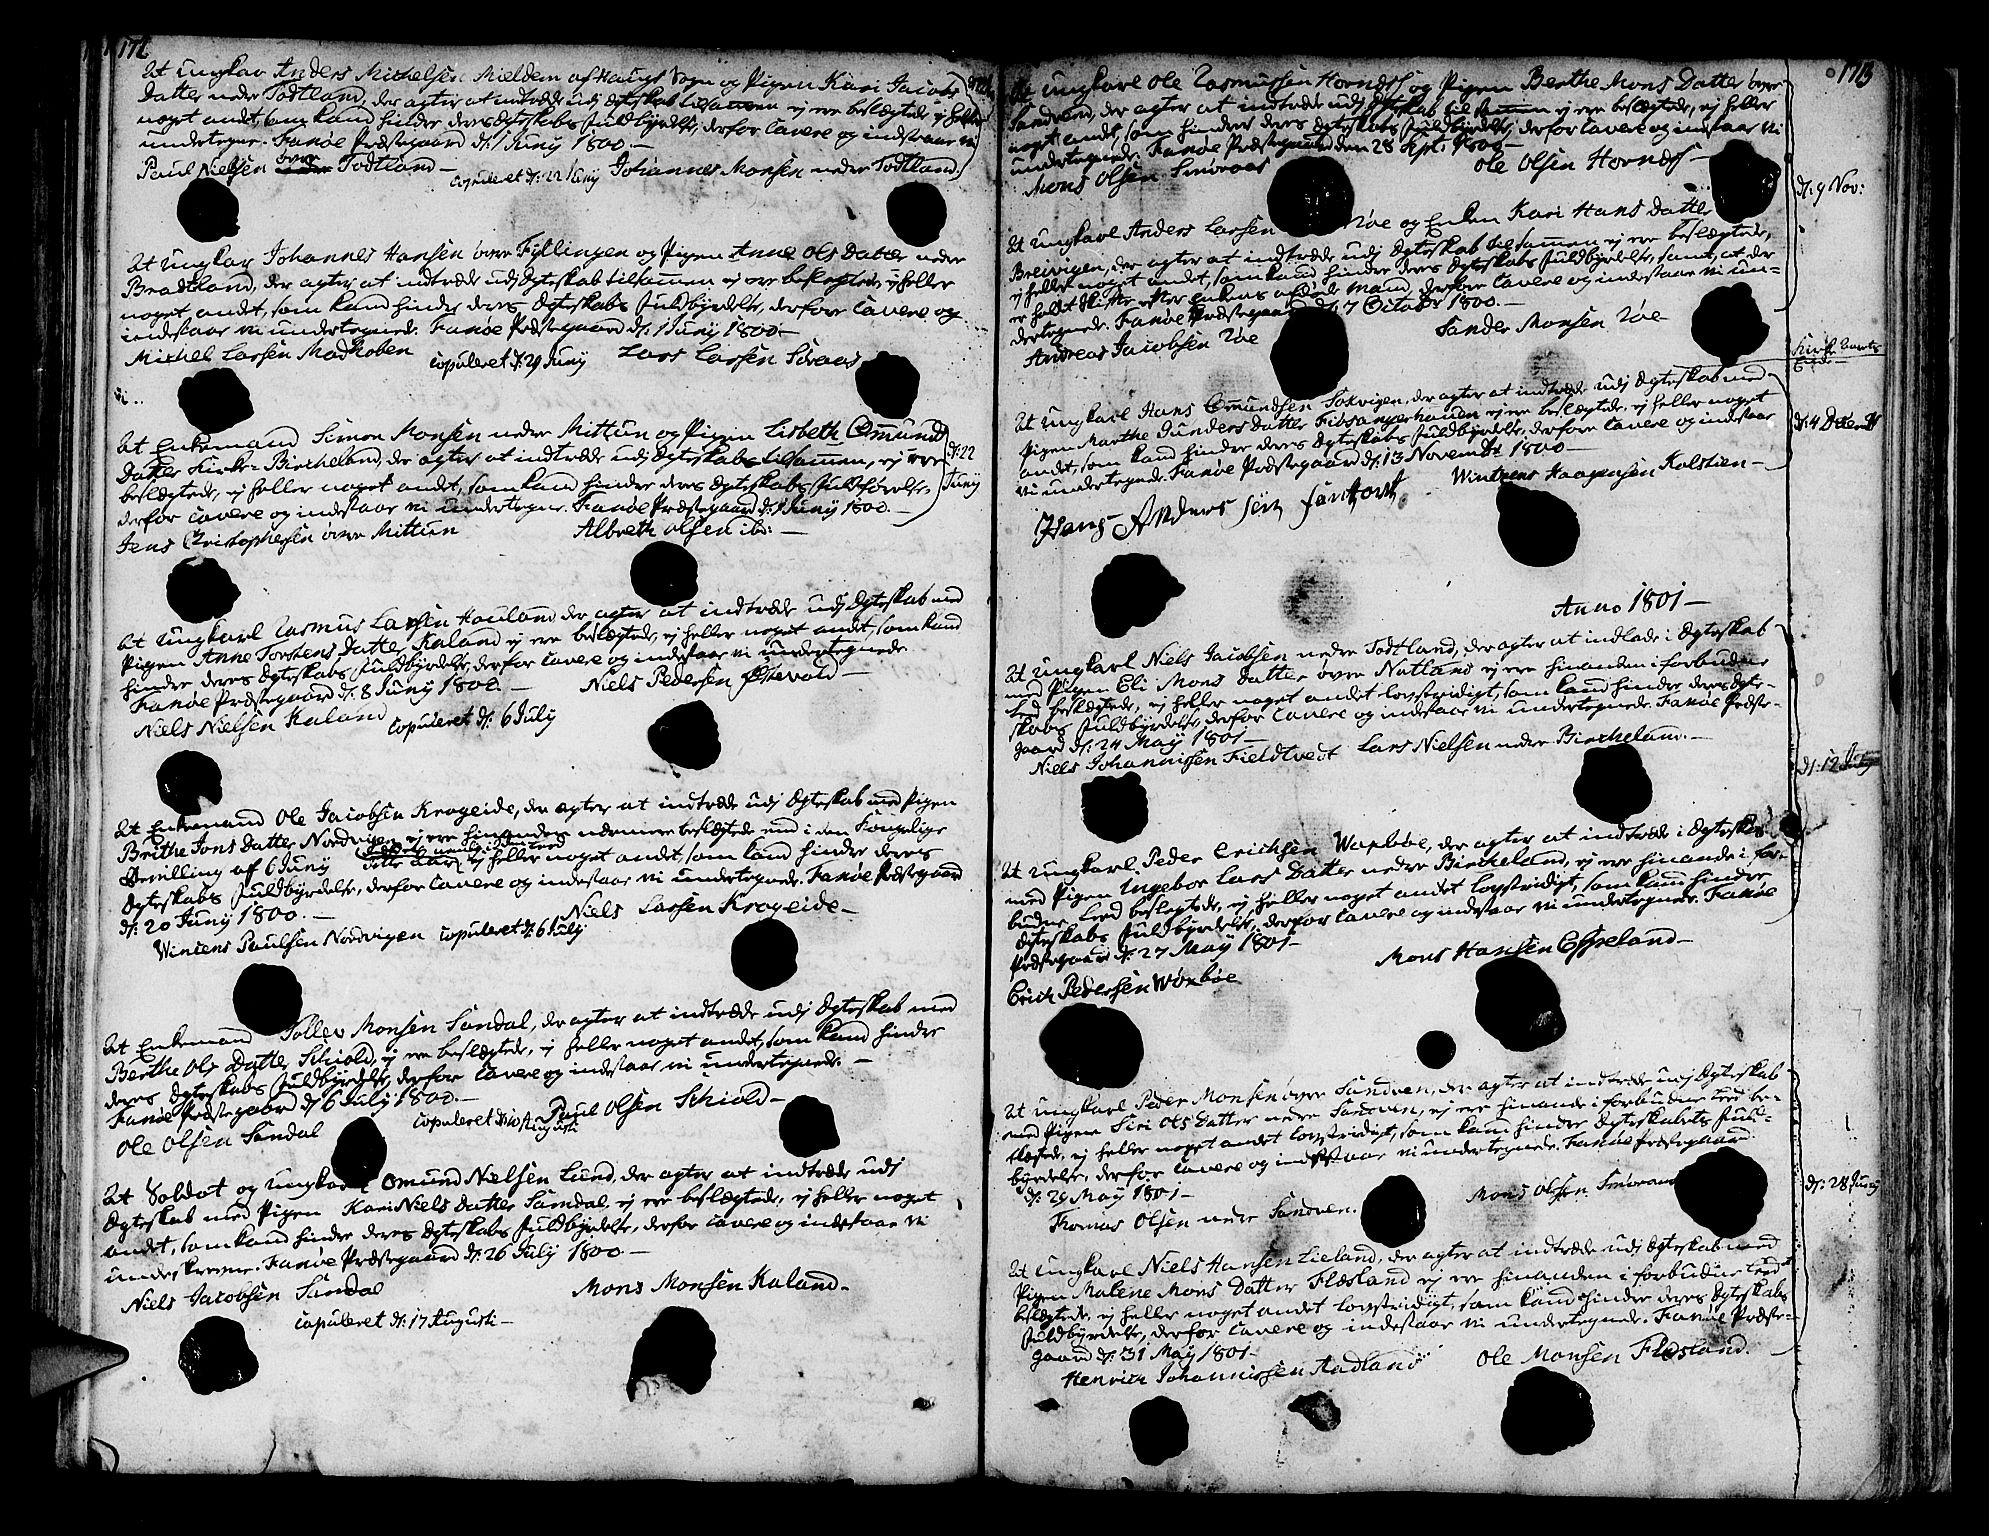 172
At Ungkar Anders Michelsen Mieldem af Haugs Sogn og Pigen Kari Jacobs
Datter nedre Todtland, der agter at indtræde udj Ægteskab tilsammen ej ere beslægtede ej heller
noget andet, som kand hindre deres Ægteskabs fuldbyrdelse, derfor Cavere og indestaar vi
undertegne. Fanøe Præstegaard d: 1 Juny 1800 —
Paul Nielsen øvre Todtland — Copuleret d: 22 Juny Johannes Monsen nedre Todtland
At Ungkar Johannes Hansen øvre Fyllingen og Pigen Anne Ols Datter nedre
Bradtland, der agter at indtræde udj Ægteskab tilsammen ej ere beslægtede, ej heller
noget andet, som kand hindre deres Ægteskabs fuldbyrdelse, derfore Cavere og
indestaar vi undertegnede. Fanøe Præstegaard d: 1 Juny 1800 —
Michel Larsen Madhoben Copuleret d: 29 Juny Lars Larsen Søraas
At Enkemand Simon Monsen nedre Mittun og Pigen Lisbeth Omund
Datter Kirke-Bircheland, der agter at indtræde udj Ægteskab tilsammen, ej ere
beslægtede, ej heller noget andet, som kand hindre deres Ægteskabs fuldførelse,
derfor Cavere og indestaar vi undertegne. Fanøe Præstegaard d: 1 Juny 1800. —
d: 22
Juny
Jens Christophersen øvre Mittun Albreth Olsen ib: —
At Ungkarl Rasmus Larsen Houland, der agter at indtræde udj Ægteskab med
Pigen Anne Torstens Datter Kaland ej ere beslægtede, ej heller noget andet, som kand
hindre deres Ægteskabs fuldbyrdelse, derfor Cavere og indestaar vi undertegnede.
Fanøe Præstegaard d: 8 Juny 1800. — Niels Pedersen Østevold —
Niels Nielsen Kaland Copuleret d: 6 July
At Enkemand Ole Jacobsen Krogeide, der agter at indtræde udj Ægteskab med Pigen
Brithe Jons Datter Nordvigen ej ere hinanden nærmere beslægtede end i den Kongelige
Bevilling af 6 Juny ej heller noget andet, som kand hindre deres
Ægteskabs fuldbyrdelse, derfor Cavere og indestaar vi undertegnede. Fanøe Præstegaard
d: 20 Juny 1800. — Niels Larsen Krogeide —
Wincens Paulsen Nordvigen Copuleret d: 6 July
At Enkemand Tollev Monsen Sandal, der agter at indtræde udj Ægteskab med
Berthe Ols Datter Schiold, ej ere beslægtede, ej heller noget andet, som kand hindre
deres Ægteskabs fuldbyrdelse, derfor Cavere og indestaar vi undertegnede. —
Fanøe Præstegaard d: 6 July 1800. —
Ole Olsen Sandal Copuleret d: 10 Augusti Paul Olsen Schiold —
At Soldat og Ungkarl Omund Nielsen Lund, der agter at indtræde udj
Ægteskab med Pigen Kari Niels Datter Sandal ej ere beslægtede, ej heller noget
andet, som kand hindre deres Ægteskabs fuldbyrdelse, derfor Cavere og indestaar vi
underskrevne. Fanøe Præstegaard d: 26 July 1800 —
Niels Jacobsen Sandal Mons Monsen Kaland —
Copuleret d: 17 Augusti —
173
At Ungkarl Ole Rasmussen Hornæss og Pigen Berthe Mons Datter øvre
Sandven, der agter at indtræde udj Ægteskab tilsammen ej ere beslægtede, ej heller
noget andt, som hindrer deres Ægteskabs fuldbyrdelse, derfor Cavere og indestaar vi
undertegnede. Fanøe Præstegaard den 28 Sept. 1800 —
Mons Olsen Smøraas Ole Olsen Hornæss —
d: 9 Nov:
At Ungkarl Anders Larsen Røe og Enken Kari Hans Datter
Breivigen, der agter at indtræde udj Ægteskab tilsammen ej ere beslægtede,
ej heller noget andet, som kand hindre deres Ægteskabs fuldbyrdelse, samt, at der
er holdt Skifte efter Enkens afdøde Mand, derfore Cavere og indestaar vi un-
dertegnede. Fanøe Præstegaard d: 7 October 1800. —
Andreas Jacobsen Røe Sander Monsen Røe
At Ungkarl Hans Omundsen Søkvigen, der agter at indtræde udj Ægteskab med
Pigen Marthe Gunders Datter Fibsangerhaunen ej ere beslægtede, ej heller noget
andet, som kand hindre deres Ægteskabs fuldbyrdelse, derfore Cavere og indestaar
vi undertegnede. Fanøe Præstegaard d: 13 Novembr 1800 —
d: 4 Decembr
Hans Andersen Wintzens Haagensen Kolstien —
Anno 1801 —
At Ungkarl Niels Jacobsen nedre Todtland, der agter at indlade i Ægteskab
med Pigen Eli Mons Datter øvre Natland ej ere hinanden i forbudne
Led beslægtede, ej heller noget andet lovstridigt, som kand hindre deres Ægte-
skabs fuldbyrdelse, derfor Cavere og indestaar vi undertegnede. Fanøe Præste-
gaard d: 24 May 1801 —
Niels Johannissen Fieldtvedt Lars Nielsen nedre Bircheland. —
d: 12 July
At Ungkarl Peder Erichsen Warbøe, der agter at indtræde i Ægteskab
med Pigen Ingebor Lars Datter nedre Bircheland, ej ere hinande i for-
budne Leed beslegtede, ej heller noget andet lovstridigt, som kand hindre
Ægteskabs fuldbyrdelse, derfor Cavere og indestaar vi undertegnede. Fanøe
Præstegaard d: 27 May 1801 —
Erich Pedersen Warbøe Mons Hansen Espeland —
At Ungkarl Peder Monsen øvre Sandven, der agter at indtræde udj Ægteskab
med Pigen Siri Ols Datter nedre Sandven, ej ere hinande i forbudne Leed be-
slægtede, ej heller noget andet lovstridigt, som kand hindre Ægteskabets fuld-
byrdelse, derfor Cavere og indestaar vi undertegnede. Fanøe Præstegaard
d: 29 May 1801 —
Thomas Olsen nedre Sandven. Mons Olsen Smøraas
d: 28 Juny
At Ungkarl Niels Hansen Lieland, der agter at indtræde udj Ægteskab med
Pigen Malene Mons Datter Flæsland ej ere hinanden i forbudne Leed
beslægtede, ej heller noget andet lovstridigt, som kand hindre deres Ægteskabs
fuldbyrdelse, derfor Cavere og indestaar vi undertegnede. Fanøe Præste-
gaard d: 31 May 1801 —
Henrich Johannissen Aadland Ole Monsen Flæsland.